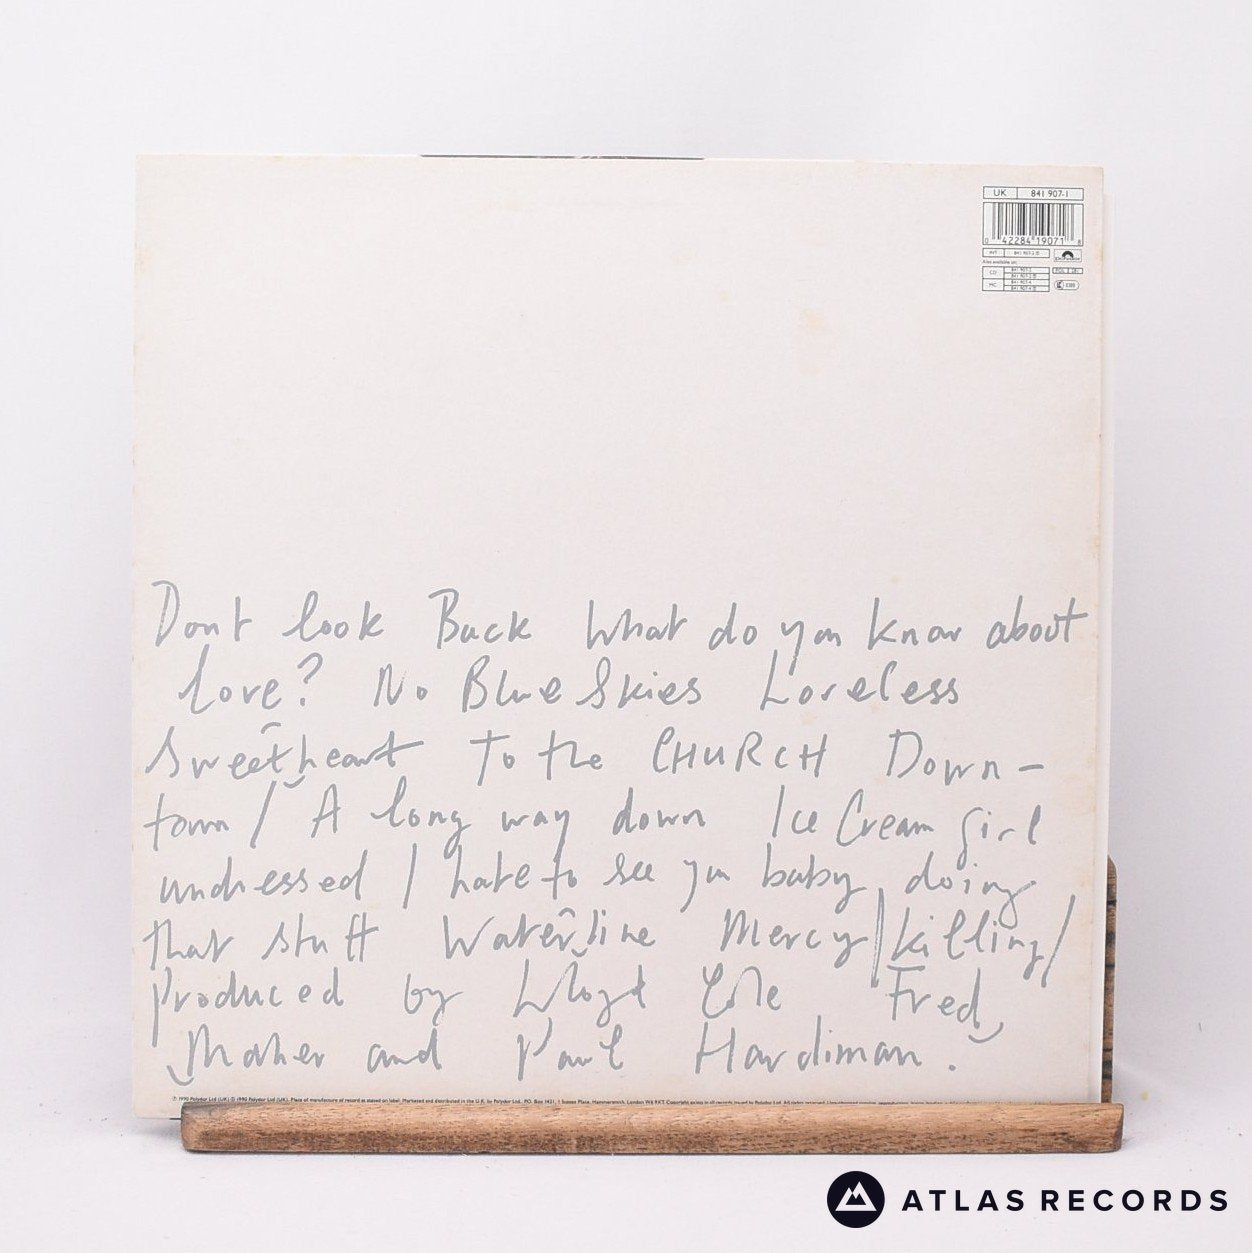 UK 841 907-1
0 42284 19071 8
INT 841 907-2
Also available on:
CD 841 907-2
MC 841 907-4
Dont look Back What do you know about
love? No Blue Skies Loveless
Sweetheart To the CHURCH Down-
town / A long way down Ice Cream girl
undressed / hate to see you baby doing
that stuff Waterline Mercy/killing/
produced by Lloyd Cole Fred
Maher and Paul Hardiman.
℗ 1990 Polydor Ltd (UK) © 1990 Polydor Ltd (UK). Place of manufacture of record as stated on label. Marketed and distributed in the U.K. by Polydor Ltd., P.O. Box 1421, 1 Sussex Place, Hammersmith, London W6 9XT.
ATLAS RECORDS